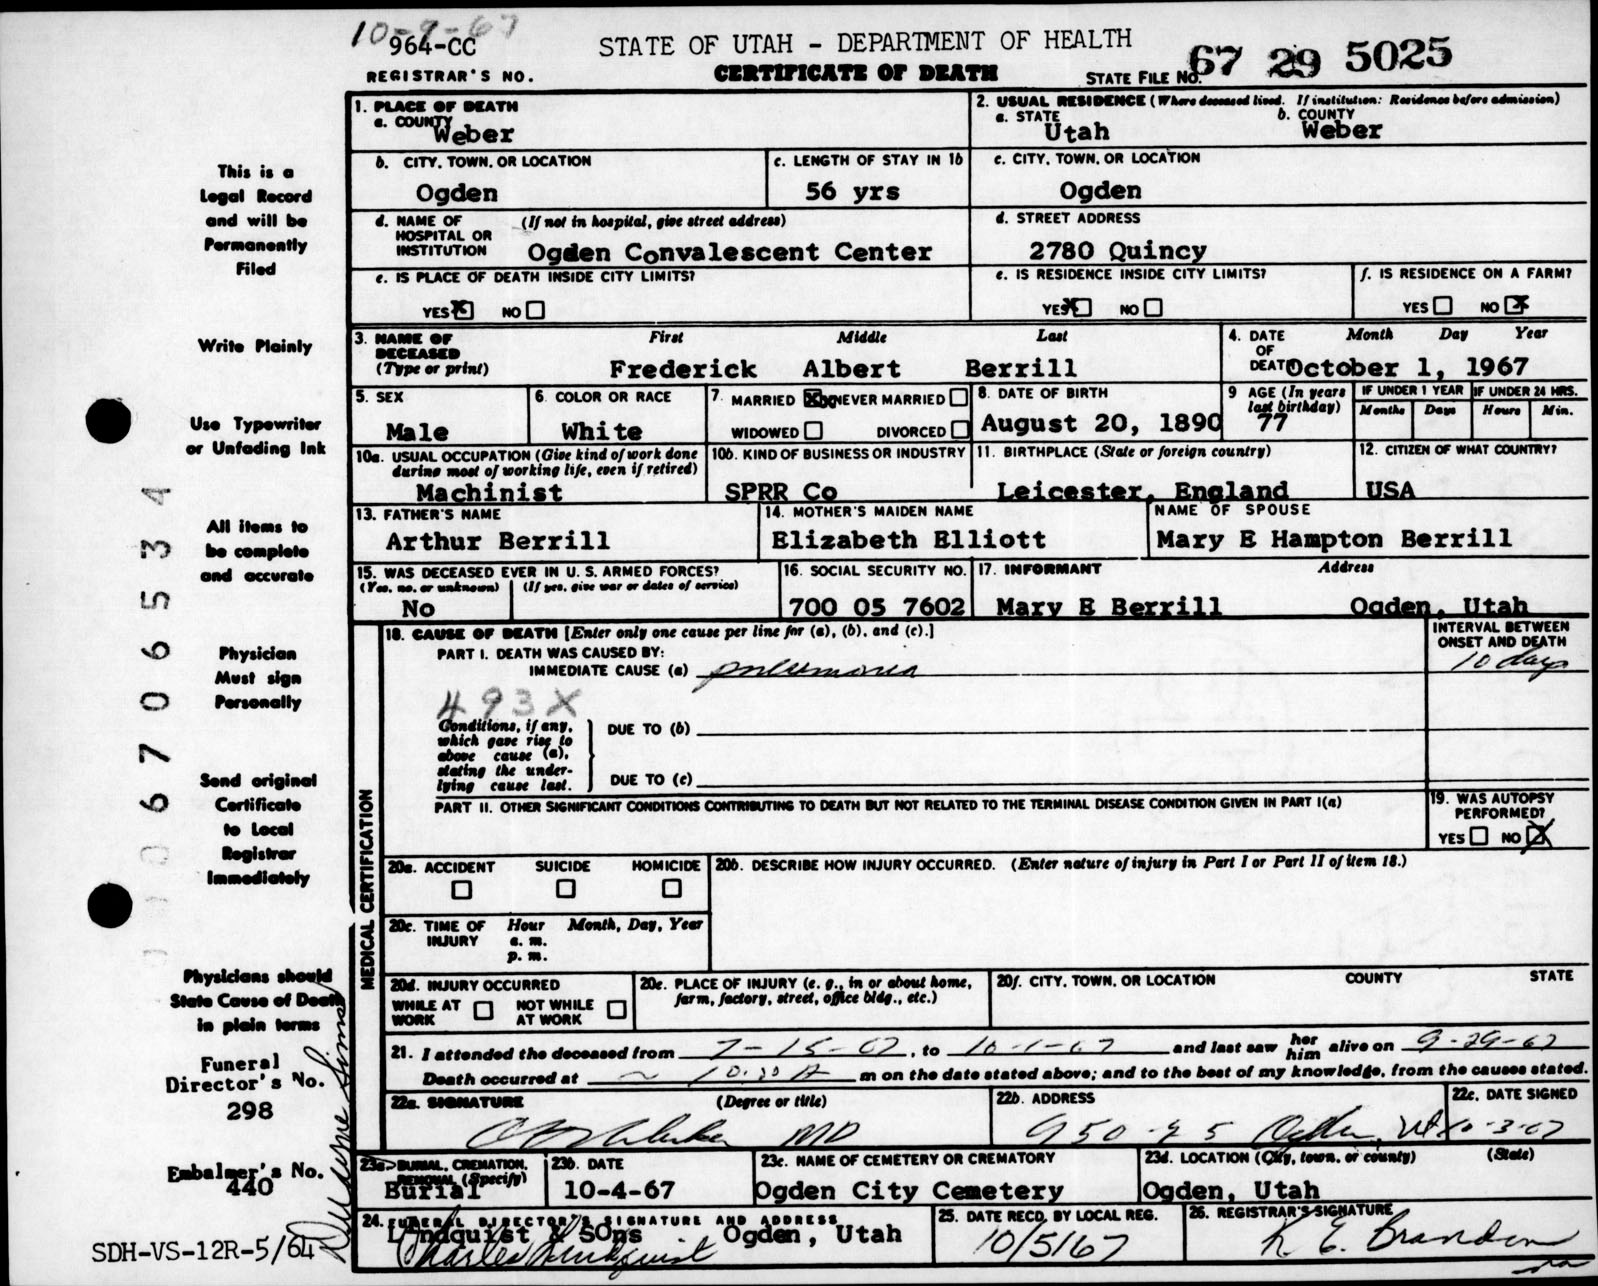 10-9-67
964-CC
REGISTRAR'S NO.
STATE OF UTAH - DEPARTMENT OF HEALTH
CERTIFICATE OF DEATH
STATE FILE NO. 67 29 5025
This is a
Legal Record
and will be
Permanently
Filed
Write Plainly
Use Typewriter
or Unfading Ink
All items to
be complete
and accurate
Physician
Must sign
Personally
Send original
Certificate
to Local
Registrar
Immediately
Physicians should
State Cause of Death
in plain terms
Funeral
Director's No.
298
Embalmer's No.
440
SDH-VS-12R-5/64
1. PLACE OF DEATH
a. COUNTY
Weber
2. USUAL RESIDENCE (Where deceased lived. If institution: Residence before admission)
a. STATE
Utah
b. COUNTY
Weber
b. CITY, TOWN, OR LOCATION
Ogden
c. LENGTH OF STAY IN 1b
56 yrs
c. CITY, TOWN, OR LOCATION
Ogden
d. NAME OF HOSPITAL OR INSTITUTION (If not in hospital, give street address)
Ogden Convalescent Center
d. STREET ADDRESS
2780 Quincy
e. IS PLACE OF DEATH INSIDE CITY LIMITS?
YES X NO
e. IS RESIDENCE INSIDE CITY LIMITS?
YES X NO
f. IS RESIDENCE ON A FARM?
YES NO X
3. NAME OF DECEASED (Type or print)
First Middle Last
Frederick Albert Berrill
4. DATE OF DEATH
Month Day Year
October 1, 1967
5. SEX
Male
6. COLOR OR RACE
White
7. MARRIED X NEVER MARRIED
WIDOWED DIVORCED
8. DATE OF BIRTH
August 20, 1890
9 AGE (In years last birthday)
77
IF UNDER 1 YEAR
Months Days
IF UNDER 24 HRS.
Hours Min.
10a. USUAL OCCUPATION (Give kind of work done during most of working life, even if retired)
Machinist
10b. KIND OF BUSINESS OR INDUSTRY
SPRR Co
11. BIRTHPLACE (State or foreign country)
Leicester, England
12. CITIZEN OF WHAT COUNTRY?
USA
13. FATHER'S NAME
Arthur Berrill
14. MOTHER'S MAIDEN NAME
Elizabeth Elliott
NAME OF SPOUSE
Mary E Hampton Berrill
15. WAS DECEASED EVER IN U. S. ARMED FORCES?
(Yes, no, or unknown) (If yes, give war or dates of service)
No
16. SOCIAL SECURITY NO.
700 05 7602
17. INFORMANT Address
Mary E Berrill Ogden, Utah
MEDICAL CERTIFICATION
18. CAUSE OF DEATH [Enter only one cause per line for (a), (b), and (c).]
PART I. DEATH WAS CAUSED BY:
IMMEDIATE CAUSE (a) pneumonia
INTERVAL BETWEEN ONSET AND DEATH
10 days
493X
Conditions, if any,
which gave rise to
above cause (a),
stating the under-
lying cause last.
DUE TO (b)
DUE TO (c)
PART II. OTHER SIGNIFICANT CONDITIONS CONTRIBUTING TO DEATH BUT NOT RELATED TO THE TERMINAL DISEASE CONDITION GIVEN IN PART I(a)
19. WAS AUTOPSY PERFORMED?
YES NO X
20a. ACCIDENT SUICIDE HOMICIDE
20b. DESCRIBE HOW INJURY OCCURRED. (Enter nature of injury in Part I or Part II of item 18.)
20c. TIME OF INJURY
Hour Month, Day, Year
a. m.
p. m.
20d. INJURY OCCURRED
WHILE AT WORK NOT WHILE AT WORK
20e. PLACE OF INJURY (e. g., in or about home, farm, factory, street, office bldg., etc.)
20f. CITY, TOWN, OR LOCATION COUNTY STATE
21. I attended the deceased from 7-15-67, to 10-1-67 and last saw her him alive on 9-29-67
Death occurred at 10:20 A m on the date stated above; and to the best of my knowledge, from the causes stated.
22a. SIGNATURE (Degree or title)
MD
22b. ADDRESS
950-25 Ogden, Ut
22c. DATE SIGNED
10-3-67
23a. BURIAL, CREMATION, REMOVAL (Specify)
Burial
23b. DATE
10-4-67
23c. NAME OF CEMETERY OR CREMATORY
Ogden City Cemetery
23d. LOCATION (City, town, or county) (State)
Ogden, Utah
24. FUNERAL DIRECTOR'S SIGNATURE AND ADDRESS
Lindquist & SOns Ogden, Utah
Charles Lindquist
25. DATE RECD. BY LOCAL REG.
10/5/67
26. REGISTRAR'S SIGNATURE
R. E. Brandon